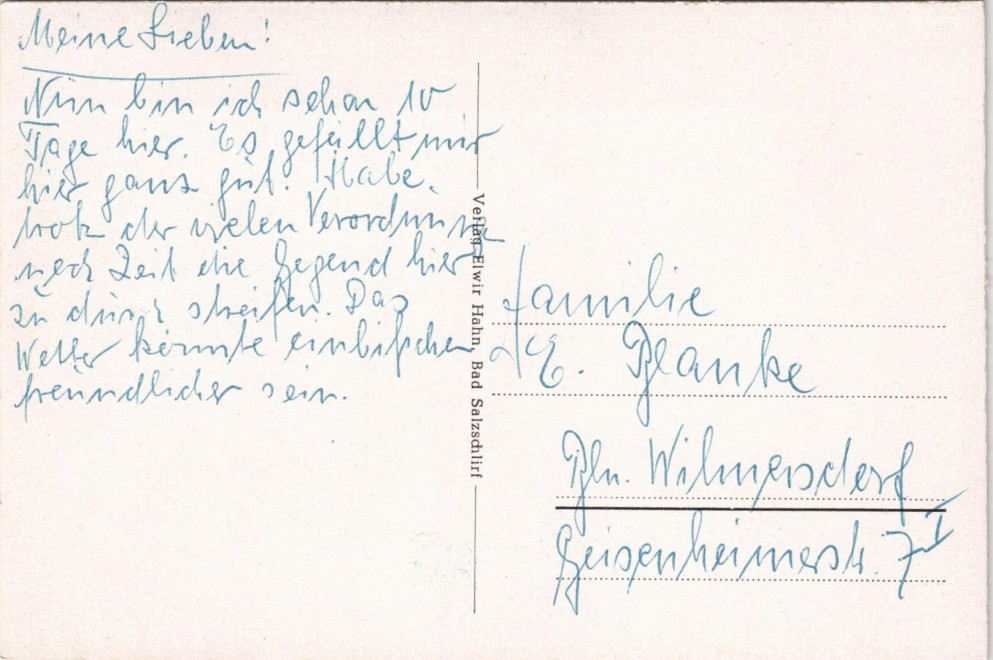 Meine Lieben!
Nun bin ich schon 10
Tage hier. Es gefällt mir
hier ganz gut. Habe,
trotz der vielen Verordnung
noch Zeit die Gegend hier
zu durch streifen. Das
Wetter könnte einbißchen
freundlicher sein.
Verlag Elwir Hahn, Bad Salzschlirf
Familie
E. Blanke
Bln. Wilmersdorf
Geisenheimerstr. 7 I